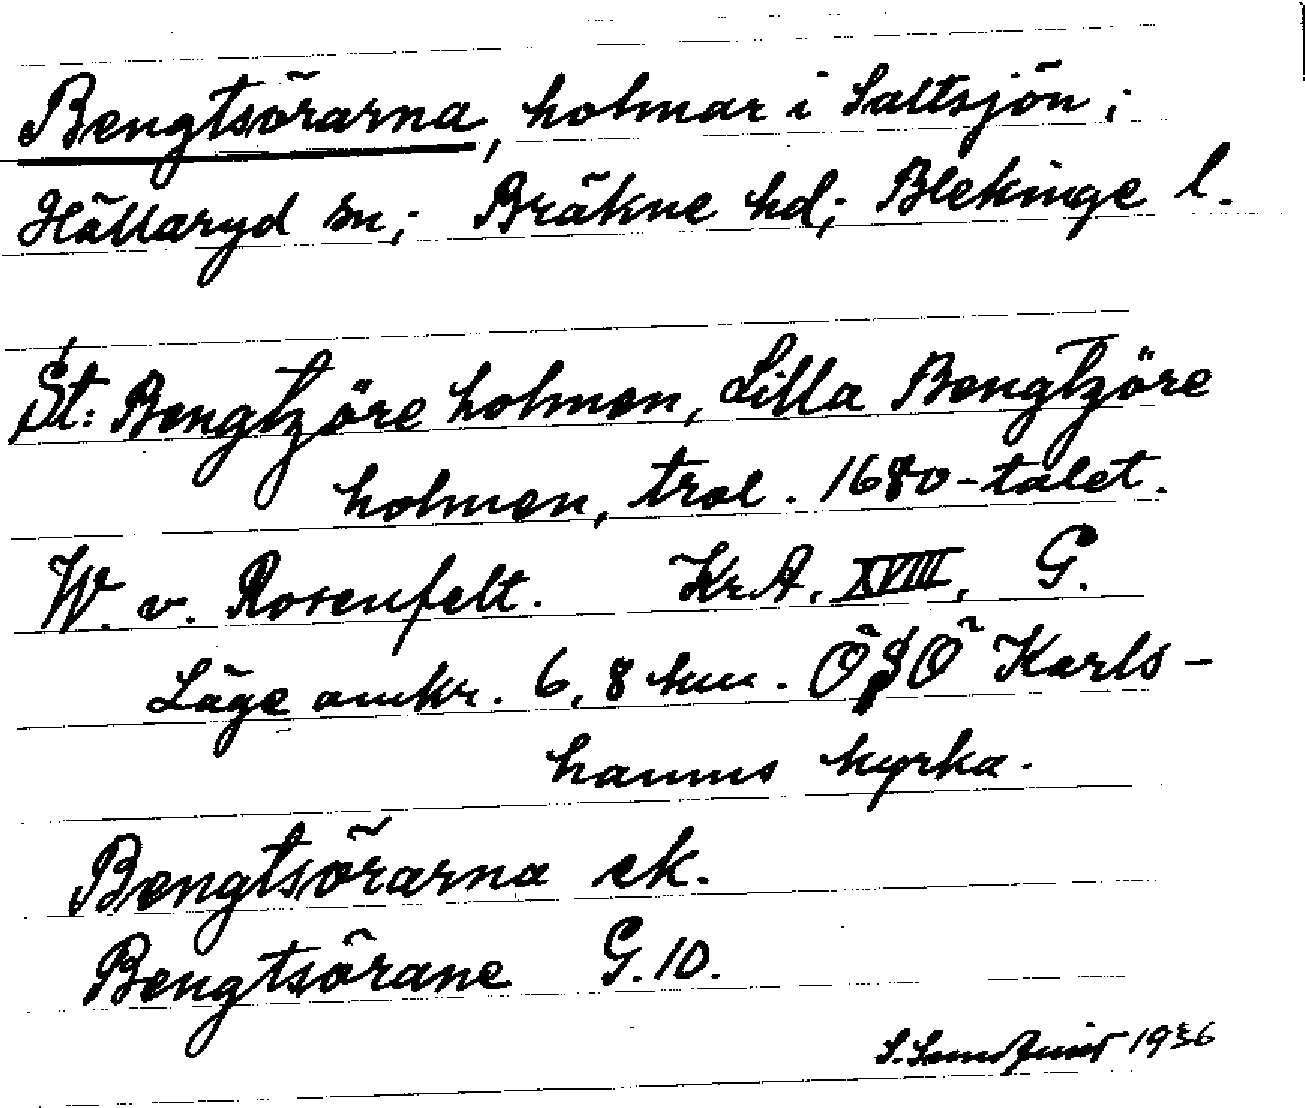 Bengtsörarna, holmar i Saltsjön;
Hällaryd sn; Bräkne hd; Blekinge l.
St: Bengtzöre holmen, Lilla Bengtzöre
holmen, trol. 1680-talet.
W. v. Rosenfelt. Kr.A. XVIII, G.
Läge omkr. 6,8 km. ÖSÖ Karls-
hamns kyrka.
Bengtsörarna ek.
Bengtsörane G.10.
1936